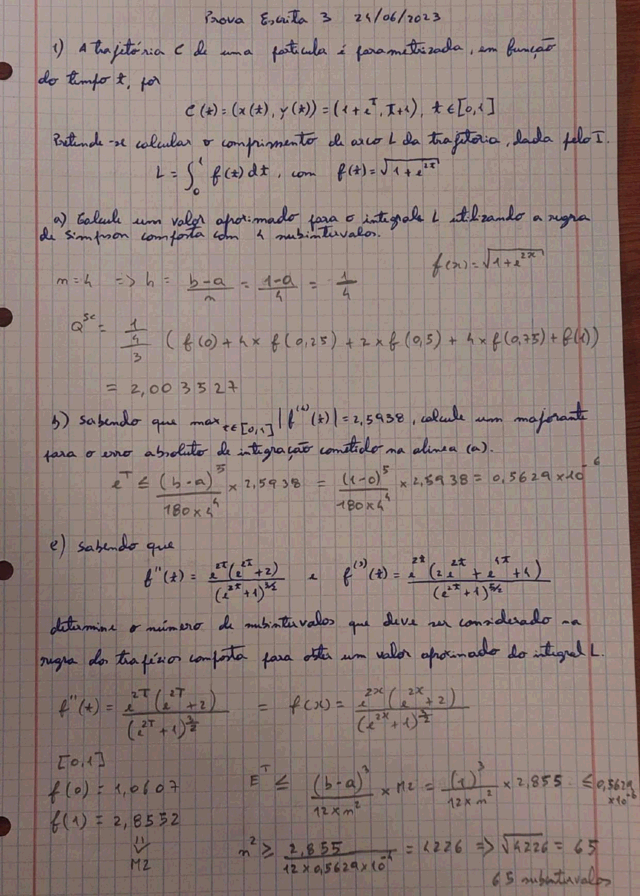 Prova Escrita 3 24/06/2023
1) A trajetória C de uma partícula é parametrizada, em função
do tempo t, por
C(t) = (x(t), y(t)) = (1+e^T, T+1), t ∈ [0,1]
Pretende-se calcular o comprimento de arco L da trajetória, dada pelo I.
L = ∫₀¹ f(t) dt, com f(t) = √(1+e^(2t))
a) Calcule um valor aproximado para o integral L utilizando a regra
de Simpson composta com 4 subintervalos.
f(x) = √(1+e^(2x))
n=4 => h = (b-a)/n = (1-0)/4 = 1/4
Q^Sc = (1/4)/3 (f(0) + 4 × f(0,25) + 2 × f(0,5) + 4 × f(0,75) + f(1))
= 2,003527
b) Sabendo que max_(t∈[0,1]) |f^(4)(t)| = 2,5938, calcule um majorante
para o erro absoluto de integração cometido na alínea (a).
e^T ≤ (b-a)^5/(180×4^4) × 2,5938 = (1-0)^5/(180×4^4) × 2,5938 = 0,5629 × 10^-6
c) Sabendo que
f''(t) = e^(2t)(e^(2t)+2)/(e^(2t)+1)^(3/2) e f^(3)(t) = e^(2t)(2e^(2t)+e^(4t)+4)/(e^(2t)+1)^(5/2)
determine o número de subintervalos que deve ser considerado na
regra dos trapézios composta para obter um valor aproximado do integral L.
f''(t) = e^(2T)(e^(2T)+2)/(e^(2T)+1)^(3/2) = f(x) = e^(2x)(e^(2x)+2)/(e^(2x)+1)^(3/2)
[0,1]
f(0) = 1,0607
E^T ≤ (b-a)^3/(12×n^2) × M2 = (1)^3/(12×n^2) × 2,855 ≤ 0,5629 × 10^-6
f(1) = 2,8552
⇓
M2
n^2 ≥ 2,855/(12×0,5629×10^-4) = 4226 => √4226 = 65
65 subintervalos